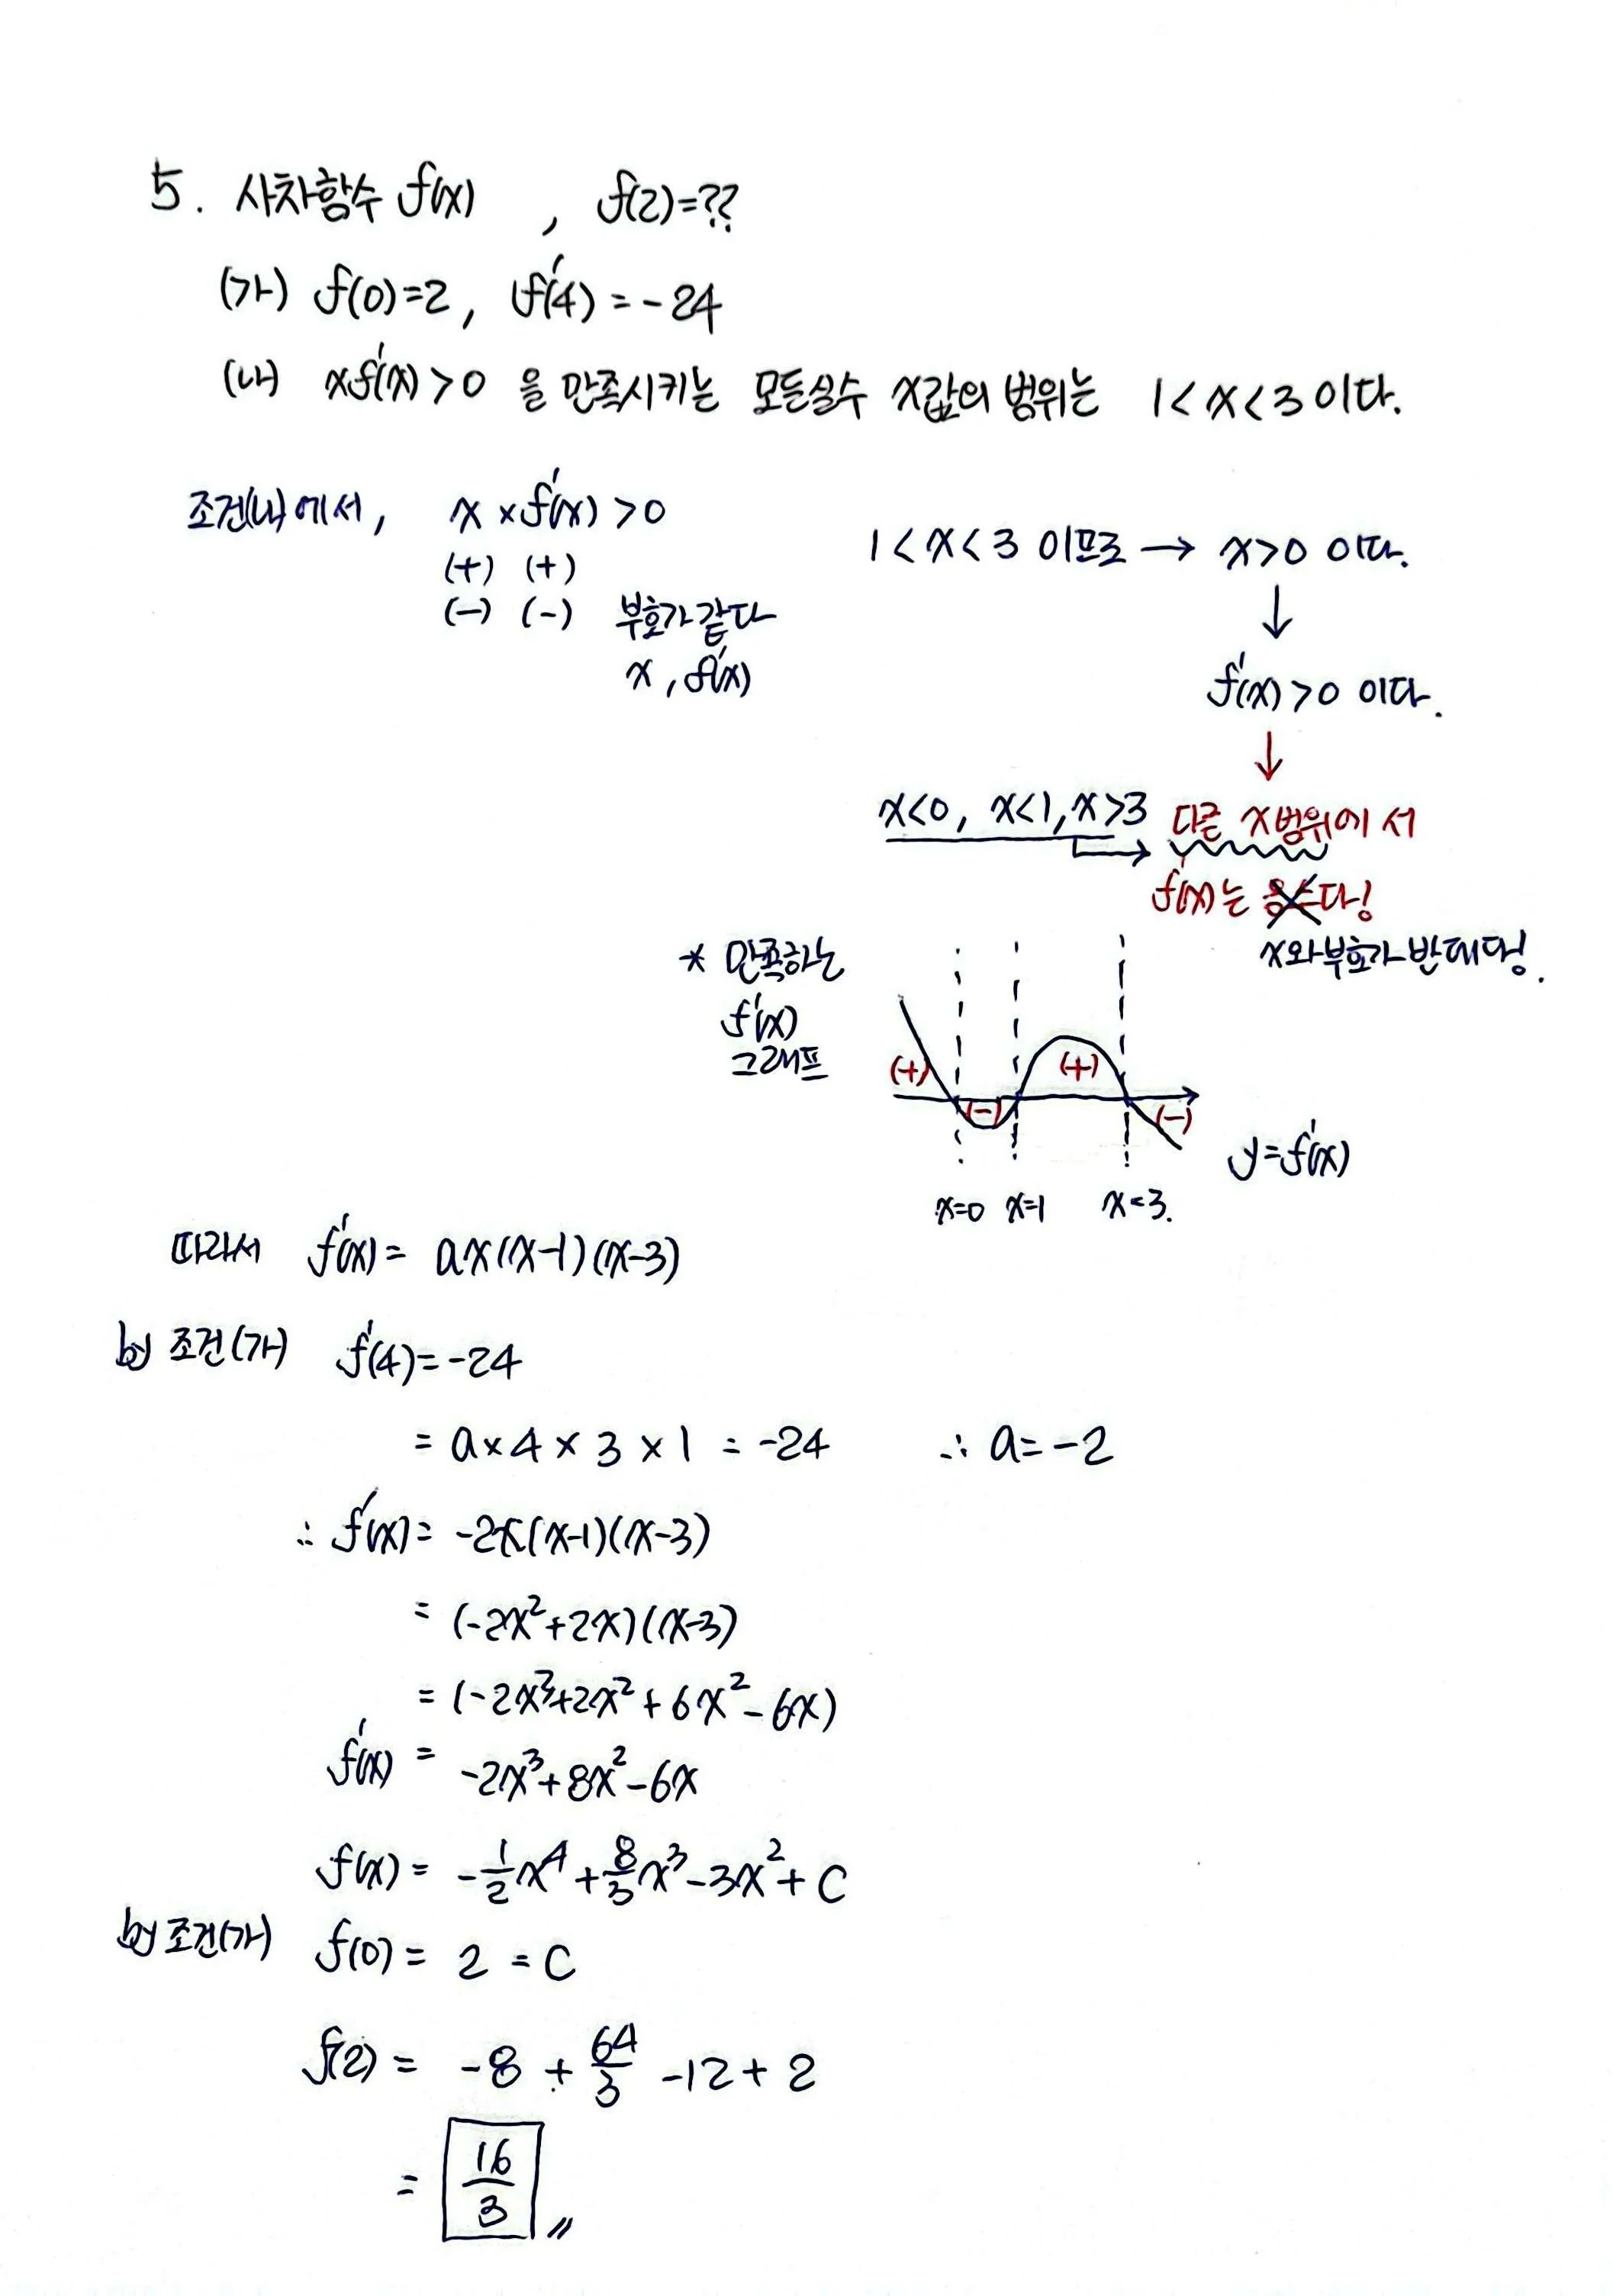 5. 사차함수 f(x) , f(2)=??
(가) f(0)=2, f'(4) = -24
(나) xf'(x)>0 을 만족시키는 모든실수 x값의 범위는 1<x<3이다.
조건(나)에서, x×f'(x)>0
(+) (+)
(-) (-) 부호가 같다
x, f'(x)
1<x<3 이므로 → x>0 이다.
↓
f'(x)>0 이다.
↓
x<0, x<1, x>3 다른 x범위에서
f'(x)는 음수다!
x와 부호가 반대당!.
* 만족하는
f'(x)
그래프
(+) (-) (+) (-)
y=f'(x)
x=0 x=1 x=3.
따라서 f'(x)= ax(x-1)(x-3)
by 조건(가) f'(4)=-24
= a×4×3×1 = -24 ∴ a=-2
∴ f'(x)= -2x(x-1)(x-3)
= (-2x²+2x)(x-3)
= (-2x³+2x²+6x²-6x)
f'(x) = -2x³+8x²-6x
f(x)= -1/2x⁴+8/3x³-3x²+C
by 조건(가) f(0)= 2 =C
f(2)= -8 + 64/3 -12+2
= 16/3 〃